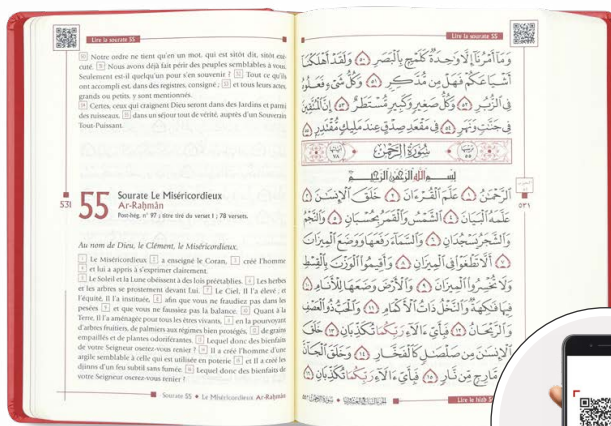 Lire la sourate 55
50 Notre ordre ne tient qu'en un mot, qui est sitôt dit, sitôt exé-
cuté. 51 Nous avons déjà fait périr des peuples semblables à vous.
Seulement est-il quelqu'un pour s'en souvenir ? 52 Tout ce qu'ils
ont accompli est, dans des registres, consigné ; 53 et tous leurs actes,
grands ou petits, y sont mentionnés.
54 Certes, ceux qui craignent Dieu seront dans des Jardins et parmi
des ruisseaux, 55 dans un séjour tout de vérité, auprès d'un Souverain
Tout-Puissant.
531
55
Sourate Le Miséricordieux
Ar-Raḥmân
Post-hég. n° 97 ; titre tiré du verset 1 ; 78 versets.
Au nom de Dieu, le Clément, le Miséricordieux.
1 Le Miséricordieux 2 a enseigné le Coran, 3 créé l'homme
4 et lui a appris à s'exprimer clairement.
5 Le Soleil et la Lune obéissent à des lois préétablies. 6 Les herbes
et les arbres se prosternent devant Lui. 7 Le Ciel, Il l'a élevé ; et
l'équité, Il l'a instituée, 8 afin que vous ne fraudiez pas dans les
pesées 9 et que vous ne faussiez pas la balance. 10 Quant à la
Terre, Il l'a aménagée pour tous les êtres vivants, 11 en la pourvoyant
d'arbres fruitiers, de palmiers aux régimes bien protégés, 12 de grains
empaillés et de plantes odoriférantes. 13 Lequel donc des bienfaits
de votre Seigneur oserez-vous renier ? 14 Il a créé l'homme d'une
argile semblable à celle qui est utilisée en poterie 15 et Il a créé les
djinns d'un feu subtil sans fumée. 16 Lequel donc des bienfaits de
votre Seigneur oserez-vous renier ?
Sourate 55 • Le Miséricordieux Ar-Raḥmân
Lire la sourate 55
وَمَآ أَمْرُنَآ إِلَّا وَٰحِدَةٌ كَلَمْحٍۭ بِٱلْبَصَرِ ٥٠ وَلَقَدْ أَهْلَكْنَآ
أَشْيَاعَكُمْ فَهَلْ مِن مُّدَّكِرٍ ٥١ وَكُلُّ شَىْءٍ فَعَلُوهُ
فِى ٱلزُّبُرِ ٥٢ وَكُلُّ صَغِيرٍ وَكَبِيرٍ مُّسْتَطَرٌ ٥٣ إِنَّ ٱلْمُتَّقِينَ
فِى جَنَّٰتٍ وَنَهَرٍ ٥٤ فِى مَقْعَدِ صِدْقٍ عِندَ مَلِيكٍ مُّقْتَدِرٍۭ ٥٥
سُورَةُ الرَّحْمَٰن
بِسْمِ ٱللَّهِ ٱلرَّحْمَٰنِ ٱلرَّحِيمِ
ٱلرَّحْمَٰنُ ١ عَلَّمَ ٱلْقُرْءَانَ ٢ خَلَقَ ٱلْإِنسَٰنَ ٣
عَلَّمَهُ ٱلْبَيَانَ ٤ ٱلشَّمْسُ وَٱلْقَمَرُ بِحُسْبَانٍ ٥ وَٱلنَّجْمُ
وَٱلشَّجَرُ يَسْجُدَانِ ٦ وَٱلسَّمَآءَ رَفَعَهَا وَوَضَعَ ٱلْمِيزَانَ
٧ أَلَّا تَطْغَوْا۟ فِى ٱلْمِيزَانِ ٨ وَأَقِيمُوا۟ ٱلْوَزْنَ بِٱلْقِسْطِ
وَلَا تُخْسِرُوا۟ ٱلْمِيزَانَ ٩ وَٱلْأَرْضَ وَضَعَهَا لِلْأَنَامِ ١٠
فِيهَا فَٰكِهَةٌ وَٱلنَّخْلُ ذَاتُ ٱلْأَكْمَامِ ١١ وَٱلْحَبُّ ذُو ٱلْعَصْفِ
وَٱلرَّيْحَانُ ١٢ فَبِأَىِّ ءَالَآءِ رَبِّكُمَا تُكَذِّبَانِ ١٣ خَلَقَ
ٱلْإِنسَٰنَ مِن صَلْصَٰلٍ كَٱلْفَخَّارِ ١٤ وَخَلَقَ ٱلْجَآنَّ
مِن مَّارِجٍ مِّن نَّارٍ ١٥ فَبِأَىِّ ءَالَآءِ رَبِّكُمَا تُكَذِّبَانِ ١٦
٥٣١
Lire le hizb